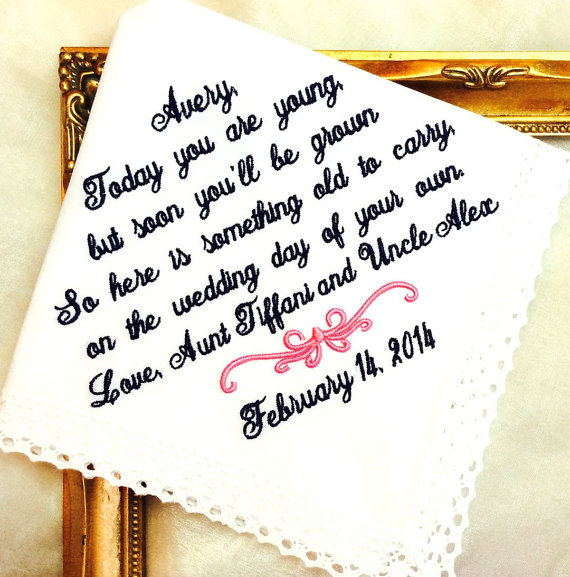 Avery,
Today you are young,
but soon you'll be grown
So here is something old to carry,
on the wedding day of your own.
Love, Aunt Tiffani and Uncle Alex
February 14, 2014